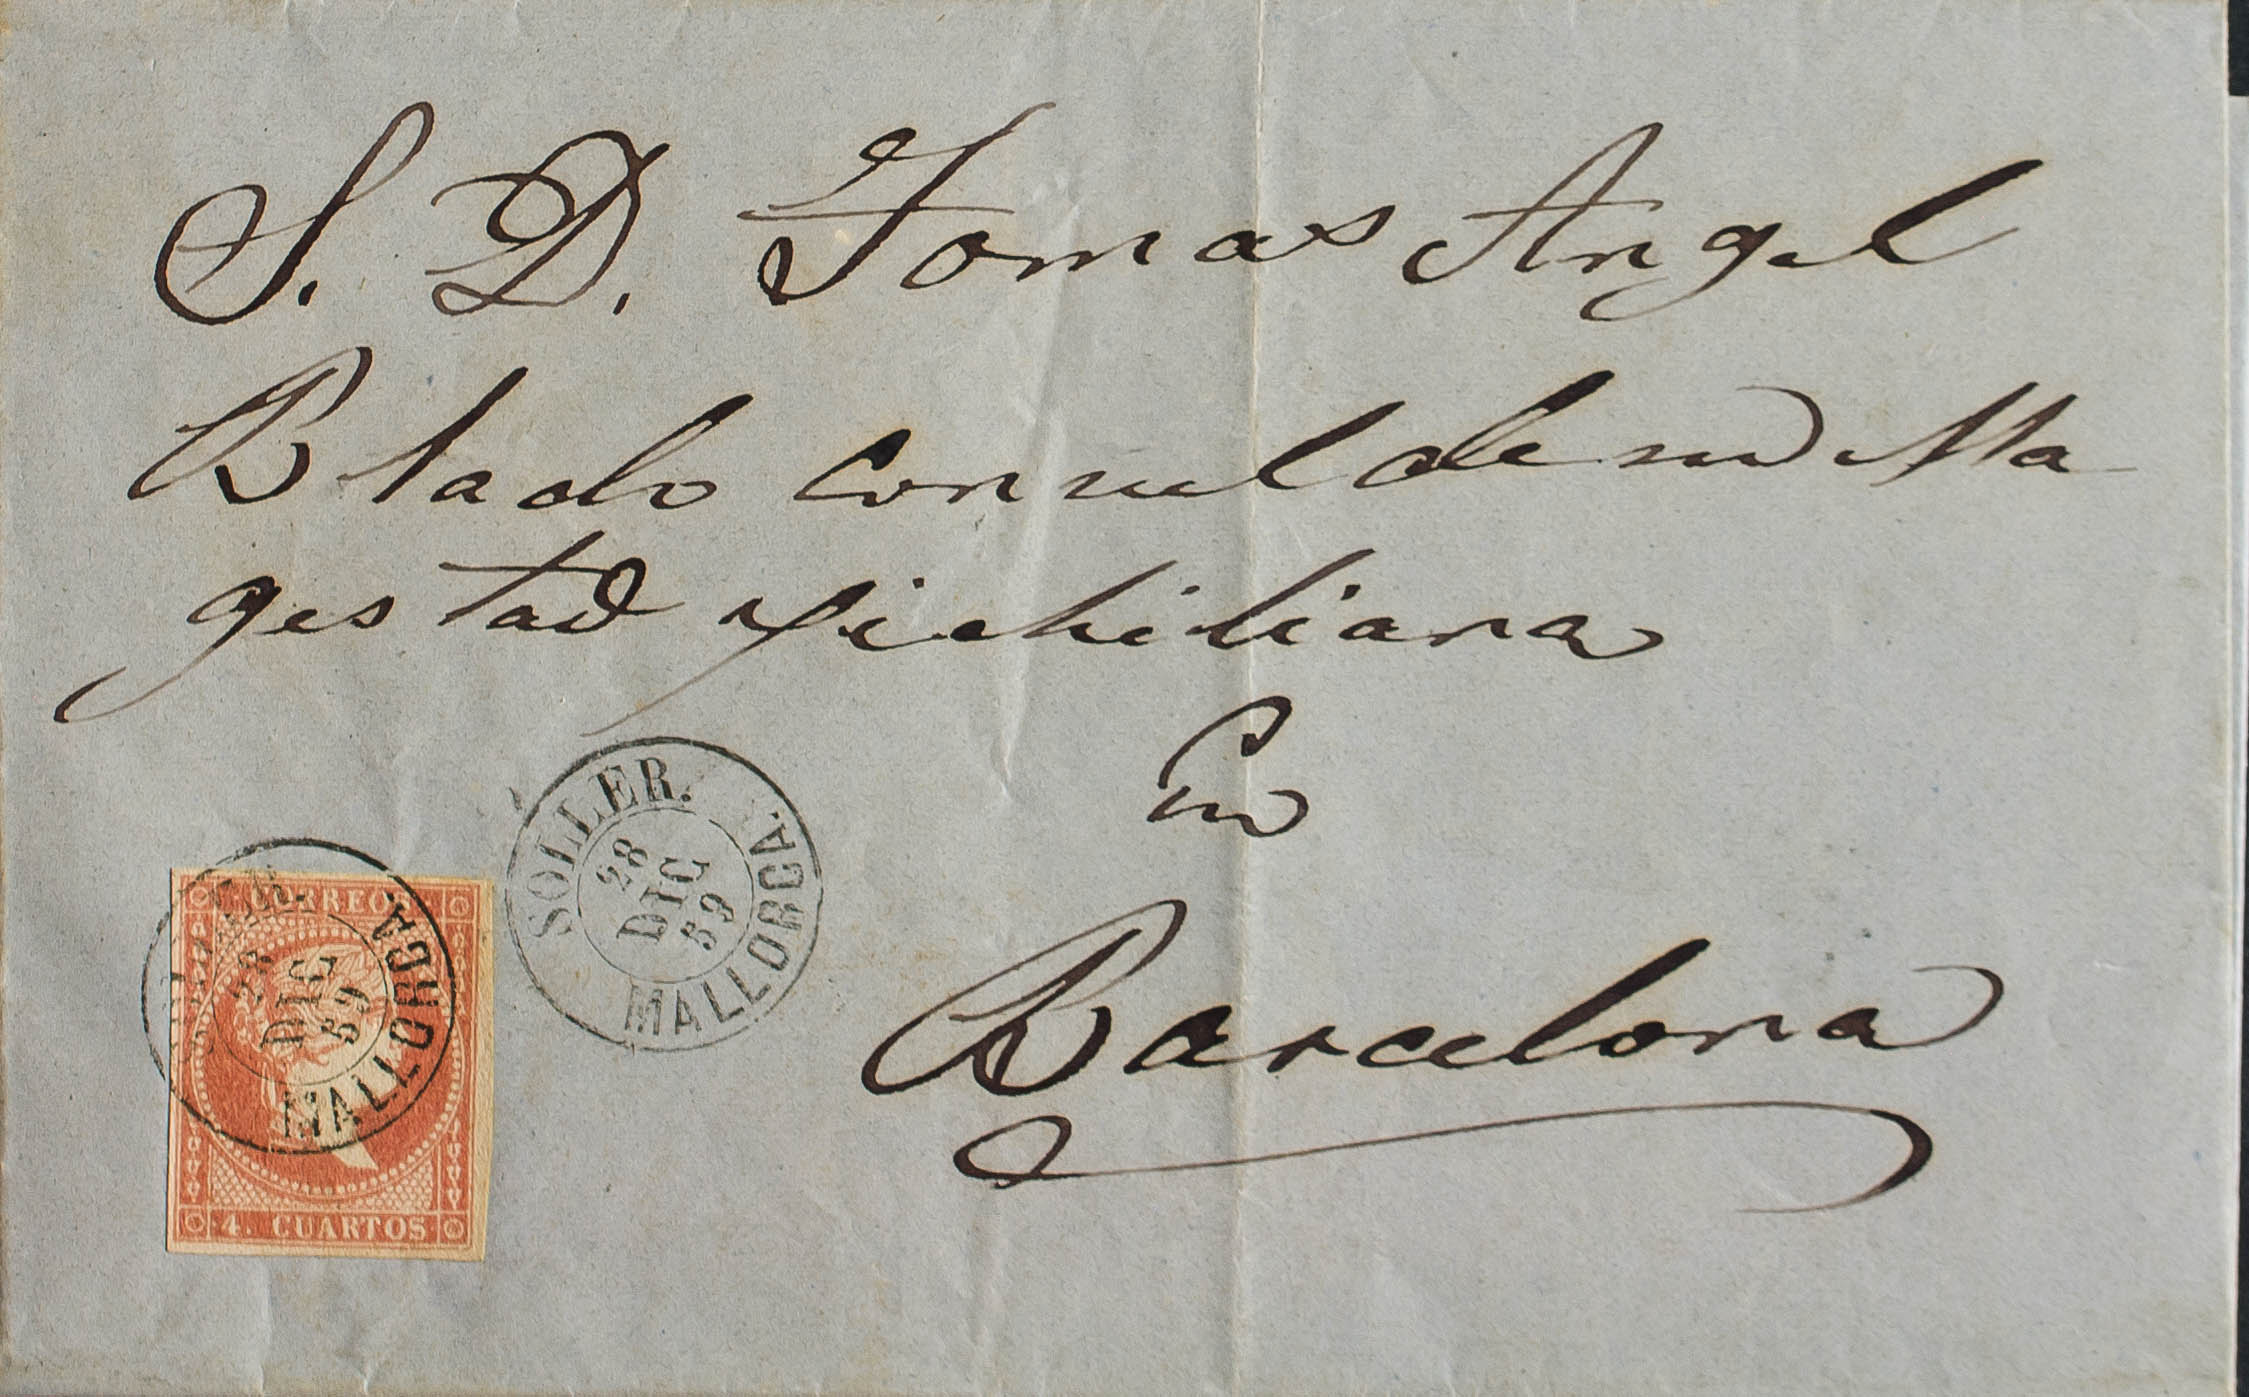 S. D. Tomas Angel
Blado Consul de su Ma
gestad
En
Barcelona
SOLLER.
28
DIC
59
MALLORCA.
CORREOS
28
DIC
59
MALLORCA.
4. CUARTOS